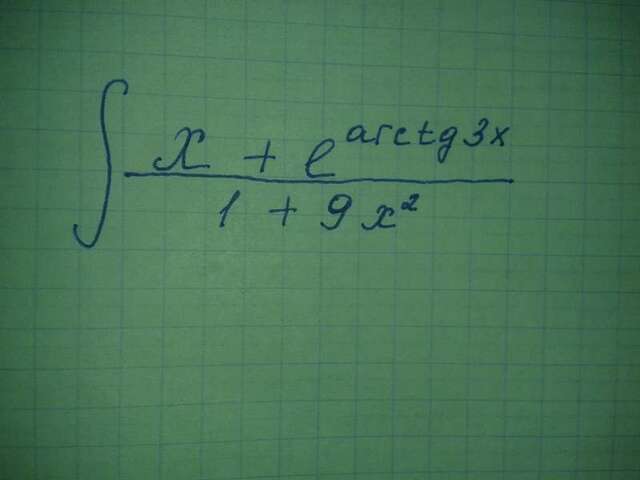 ∫ (x + e^{arctg 3x}) / (1 + 9x²)